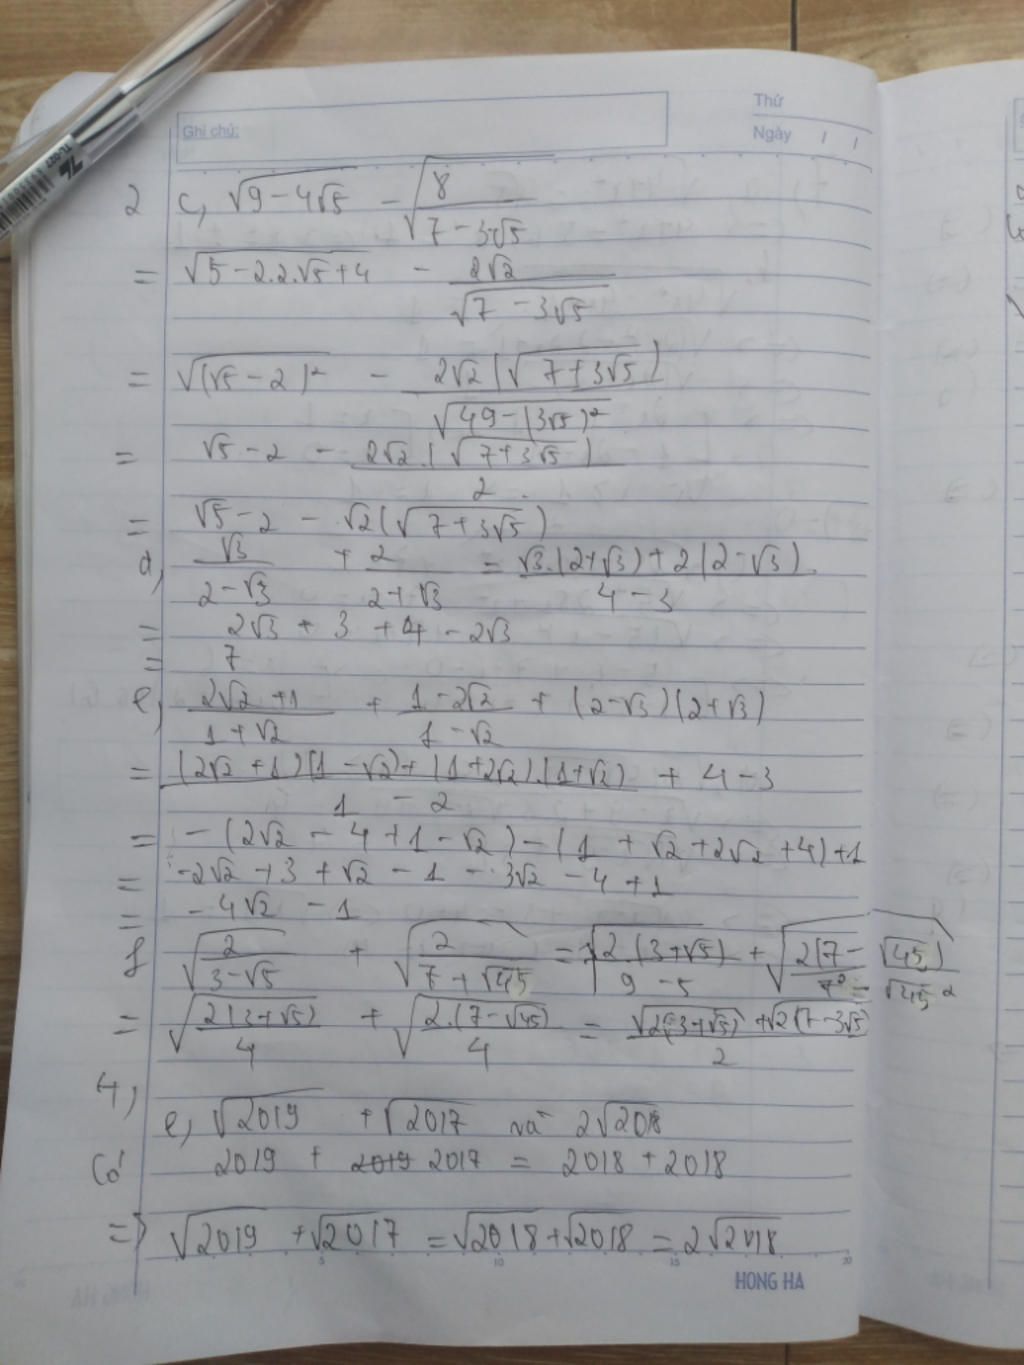 Thứ
Ghi chú:
Ngày / /
2 c, √(9 - 4√5) - √(8/(7 - 3√5))
= √(5 - 2.2.√5 + 4) - 2√2/√(7 - 3√5)
= √((√5 - 2)²) - 2√2(√(7 + 3√5))/√(49 - (3√5)²)
= √5 - 2 - 2√2.(√(7 + 3√5))/2
= √5 - 2 - √2(√(7 + 3√5))
d, √3/(2 - √3) + 2/(2 + √3) = (√3.(2 + √3) + 2(2 - √3))/(4 - 3)
= 2√3 + 3 + 4 - 2√3
= 7
e, (2√2 + 1)/(1 + √2) + (1 - 2√2)/(1 - √2) + (2 - √3)(2 + √3)
= ((2√2 + 1)(1 - √2) + (1 + 2√2).(1 + √2))/(1 - 2) + 4 - 3
= -(2√2 - 4 + 1 - √2) - (1 + √2 + 2√2 + 4) + 1
= -2√2 + 3 + √2 - 1 - 3√2 - 4 + 1
= -4√2 - 1
f √(2/(3 - √5)) + √(2/(7 + √45)) = √(2.(3 + √5)/(9 - 5)) + √(2(7 - √45)/(7² - √45²))
= √(2(3 + √5)/4) + √(2.(7 - √45)/4) = (√(2(3 + √5)) + √(2(7 - 3√5)))/2
4,
e, √2019 + √2017 và 2√2018
Có 2019 + 2019 2017 = 2018 + 2018
=> √2019 + √2017 = √2018 + √2018 = 2√2018
5 10 15 20
HONG HA